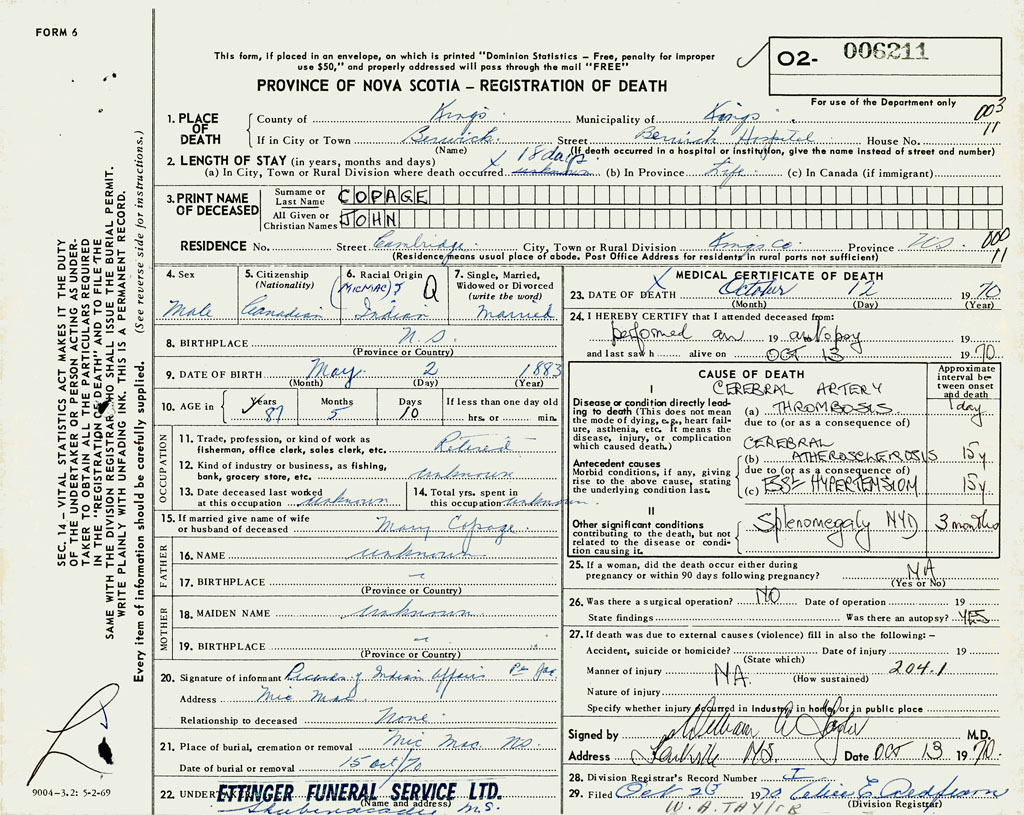 FORM 6
This form, if placed in an envelope, on which is printed "Dominion Statistics – Free, penalty for improper
use $50," and properly addressed will pass through the mail "FREE"
O2- 006211
PROVINCE OF NOVA SCOTIA – REGISTRATION OF DEATH
For use of the Department only
003
11
1. PLACE OF DEATH
County of Kings Municipality of Kings
If in City or Town Berwick Street Berwick Hospital House No.
(Name) (If death occurred in a hospital or institution, give the name instead of street and number)
2. LENGTH OF STAY (in years, months and days) 18 days
(a) In City, Town or Rural Division where death occurred unknown (b) In Province Life (c) In Canada (if immigrant)
3. PRINT NAME OF DECEASED
Surname or Last Name COPAGE
All Given or Christian Names JOHN
RESIDENCE No. Street Cambridge City, Town or Rural Division Kings Co. Province N.S. 000
(Residence means usual place of abode. Post Office Address for residents in rural parts not sufficient) 11
4. Sex Male
5. Citizenship (Nationality) Canadian
6. Racial Origin (MICMAC) Indian
7. Single, Married, Widowed or Divorced (write the word) Married
8. BIRTHPLACE N.S.
(Province or Country)
9. DATE OF BIRTH May 2 1883
(Month) (Day) (Year)
10. AGE in Years 87 Months 5 Days 10 If less than one day old hrs. or min.
OCCUPATION
11. Trade, profession, or kind of work as fisherman, office clerk, sales clerk, etc. Retired
12. Kind of industry or business, as fishing, bank, grocery store, etc. unknown
13. Date deceased last worked at this occupation unknown
14. Total yrs. spent in this occupation unknown
15. If married give name of wife or husband of deceased Mary Copage
FATHER
16. NAME unknown
17. BIRTHPLACE –
(Province or Country)
MOTHER
18. MAIDEN NAME unknown
19. BIRTHPLACE –
(Province or Country)
20. Signature of informant Indian Affairs
Address Mic Mac
Relationship to deceased None
21. Place of burial, cremation or removal Mic Mac NS.
Date of burial or removal 15 oct/70
22. UNDERT ETTINGER FUNERAL SERVICE LTD.
(Name and address)
Shubenacadie N.S.
MEDICAL CERTIFICATE OF DEATH
23. DATE OF DEATH October 12 1970
(Month) (Day)
24. I HEREBY CERTIFY that I attended deceased from:
performed an 19 autopsy
and last saw h alive on OCT 13 1970
CAUSE OF DEATH
Approximate interval between onset and death
I CEREBRAL ARTERY
Disease or condition directly leading to death (This does not mean the mode of dying, e.g., heart failure, asthenia, etc. It means the disease, injury, or complication which caused death.)
(a) THROMBOSIS 1 day
due to (or as a consequence of)
CEREBRAL
(b) ATHEROSCLEROSIS 15y
Antecedent causes
Morbid conditions, if any, giving rise to the above cause, stating the underlying condition last.
due to (or as a consequence of)
(c) ESS. HYPERTENSION 15y
II
Other significant conditions contributing to the death, but not related to the disease or condition causing it.
Splenomegaly NYD 3 months
25. If a woman, did the death occur either during pregnancy or within 90 days following pregnancy? NA
(Yes or No)
26. Was there a surgical operation? NO Date of operation 19
State findings Was there an autopsy? YES
27. If death was due to external causes (violence) fill in also the following: –
Accident, suicide or homicide? Date of injury 19
(State which)
Manner of injury NA. 204.1
(How sustained)
Nature of injury
Specify whether injury occurred in Industry, in home, or in public place
Signed by William A Taylor M.D.
Address Kentville N.S. Date OCT 13 1970.
28. Division Registrar's Record Number
29. Filed Oct 23 1970
(Division Registrar)
W. A. TAYLOR
SEC. 14 – VITAL STATISTICS ACT MAKES IT THE DUTY
OF THE UNDERTAKER OR PERSON ACTING AS UNDER-
TAKER TO OBTAIN ALL THE PARTICULARS REQUIRED
IN THE "REGISTRATION OF DEATH" AND TO FILE THE
SAME WITH THE DIVISION REGISTRAR WHO SHALL ISSUE THE BURIAL PERMIT.
WRITE PLAINLY WITH UNFADING INK. THIS IS A PERMANENT RECORD.
Every item of information should be carefully supplied. (See reverse side for instructions.)
9004-3.2: 5-2-69